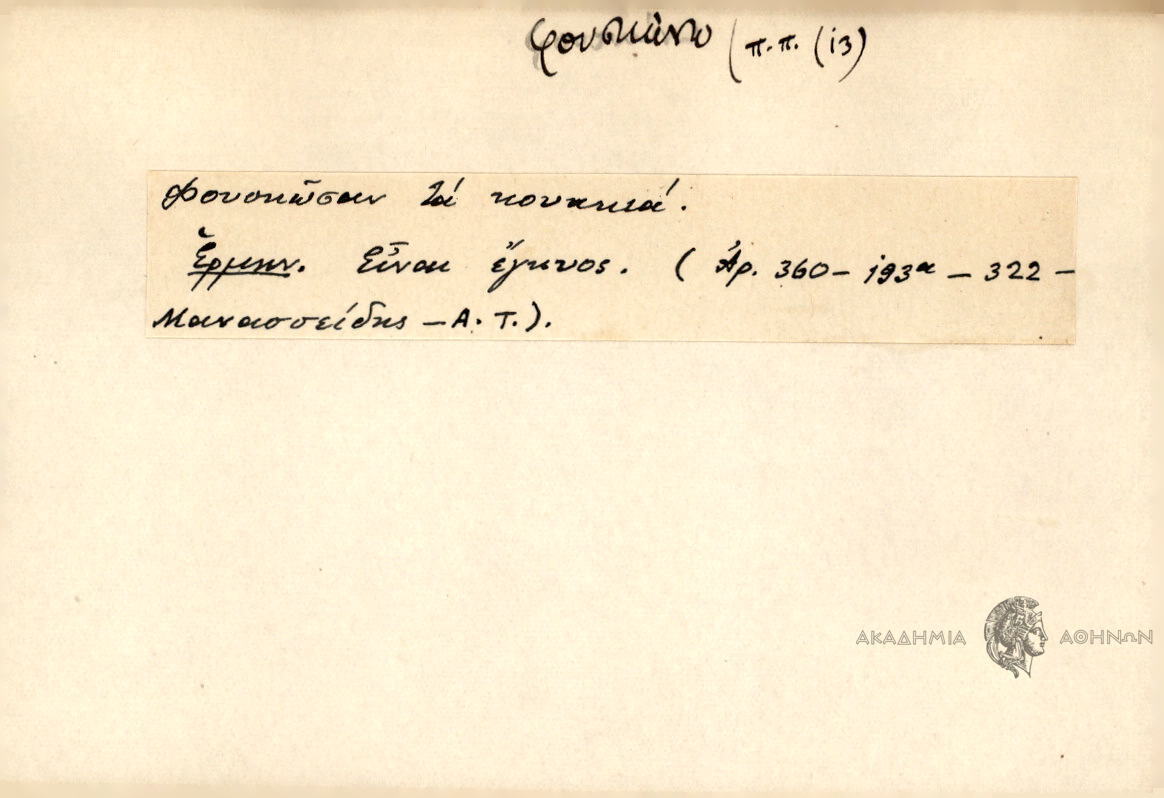 φουσκώνω (π.π. (13)
Φουσκῶσαν τά κουκκιά.
Ἑρμην. Εἶναι ἔγκυος. (Ἀρ. 360 – 193α – 322 –
Μανασσείδης – Α. Τ.).
ΑΚΑΔΗΜΙΑ ΑΘΗΝΩΝ